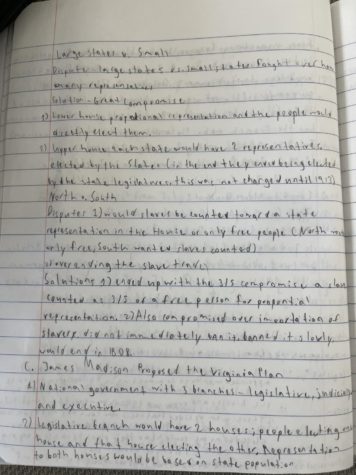 Large states v. Small
Dispute- large states vs. small states fought over how
many representatives
Solution- Great Compromise
1) Lower house propational representation and the people would
directly elect them.
2) Upper house each state would have 2 representatives
elected by the states (in the end they ended being elected
by the state legislatures, this was not changed until 1913)
North v. South
Disputes 1) would slaves be counted toward a state
representation in the House or only free people (North
only free, South wanted slaves counted)
2) over ending the slave trade
Solutions 1) ended up with the 3/5 compromise a slave
counted as 3/5 of a free person for propantial
representation. 2) Also compromised over importation of
slavery did not immediately ban it, banned it slowly
would end in 1808.
C. James Madison Proposed the Virginia Plan
1) National government with 3 branches- legislative, judicial
and executive.
2) legislative branch would have 2 houses; people electing one
house and that house electing the other. Representation
to both houses would be base on state population